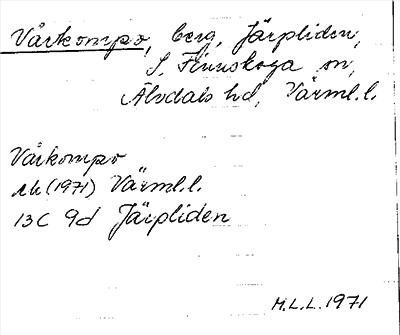 Vårkompo, berg, Järpliden,
S. Finnskoga sn,
Älvdals hd, Värml.l.
Vårkompo
ek (1971) Värml.l.
13C 9d Järpliden
M.L.L. 1971